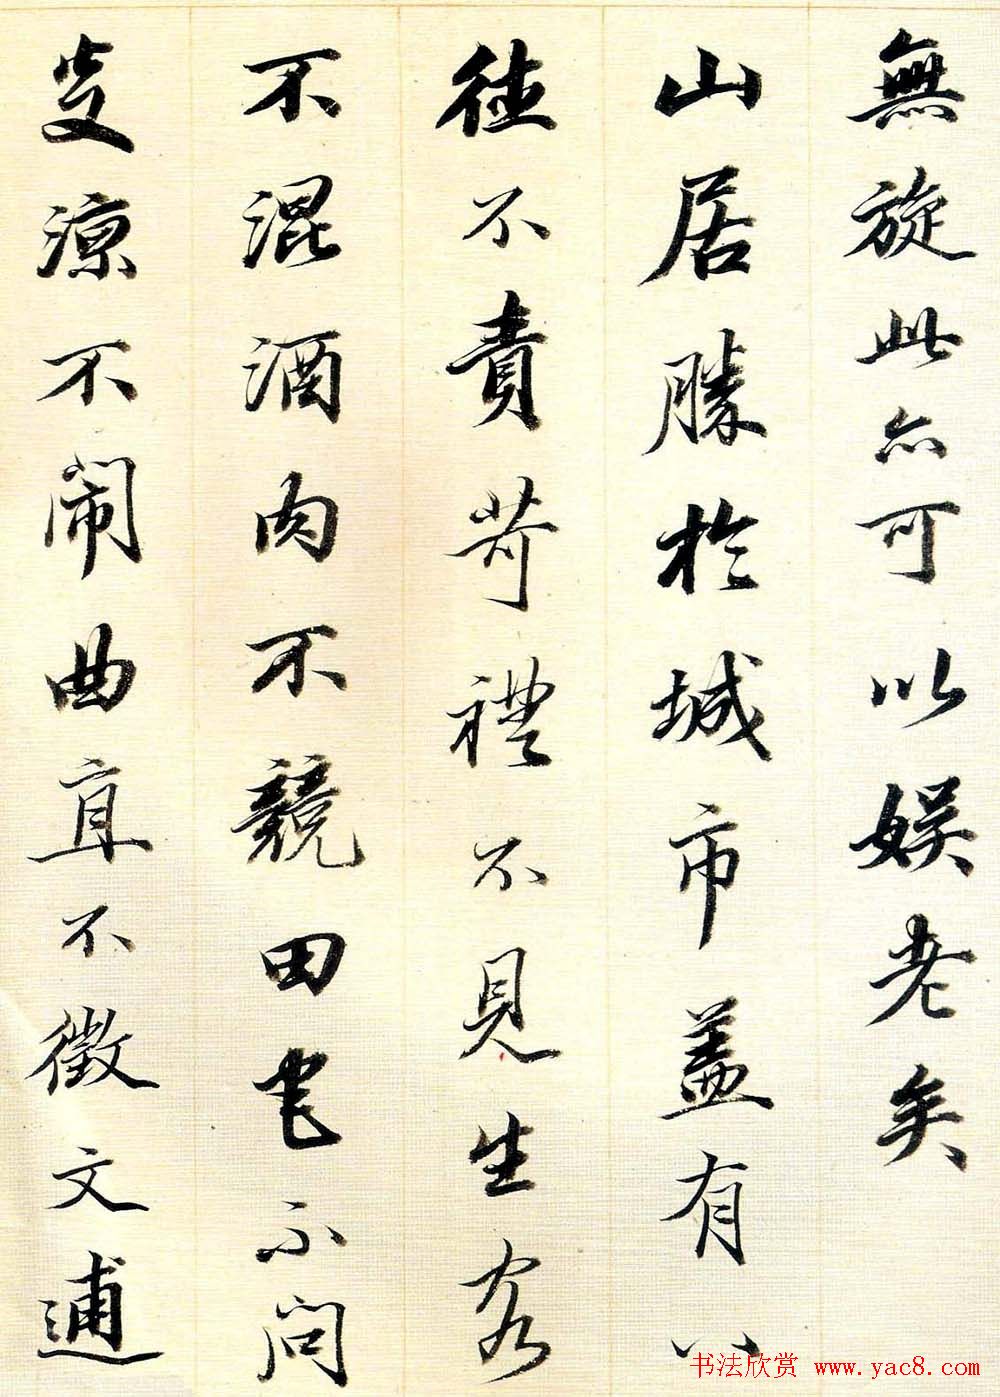 無旋此亦可以娱老矣
山居勝於城市盖有八
徳不責苛禮不見生客
不混酒肉不競田宅不問
炎凉不闹曲直不徵文逋
书法欣赏 www.yac8.com